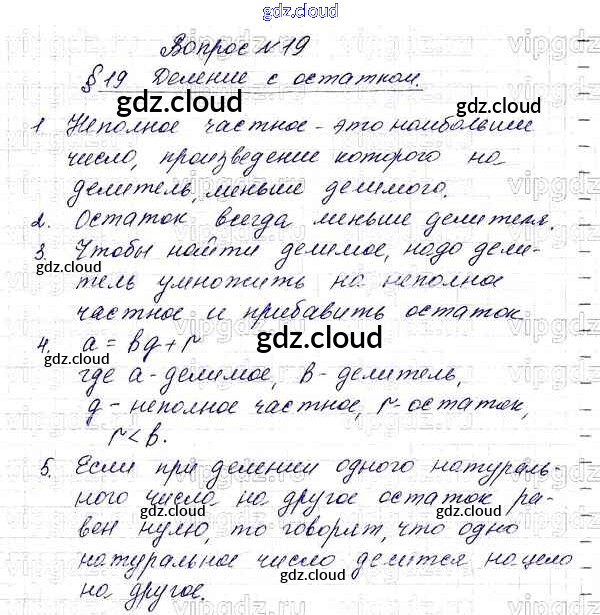 gdz.cloud
Вопрос №19
§19 Деление с остатком.
gdz.cloud
1. Неполное частное - это наибольшее
число, произведение которого на
делитель, меньше делимого.
2. Остаток всегда меньше делителя.
3. Чтобы найти делимое, надо дели-
тель умножить на неполное
частное и прибавить остаток
4. a = bq + r
где a - делимое, b - делитель,
q - неполное частное, r - остаток,
r < b.
5. Если при делении одного натураль-
ного число на другое остаток ра-
вен нулю, то говорят, что одно
натуральное число делится нацело
на другое.
gdz.cloud
gdz.cloud
gdz.cloud
gdz.cloud
gdz.cloud
gdz.cloud
gdz.cloud
gdz.cloud
gdz.cloud
gdz.cloud